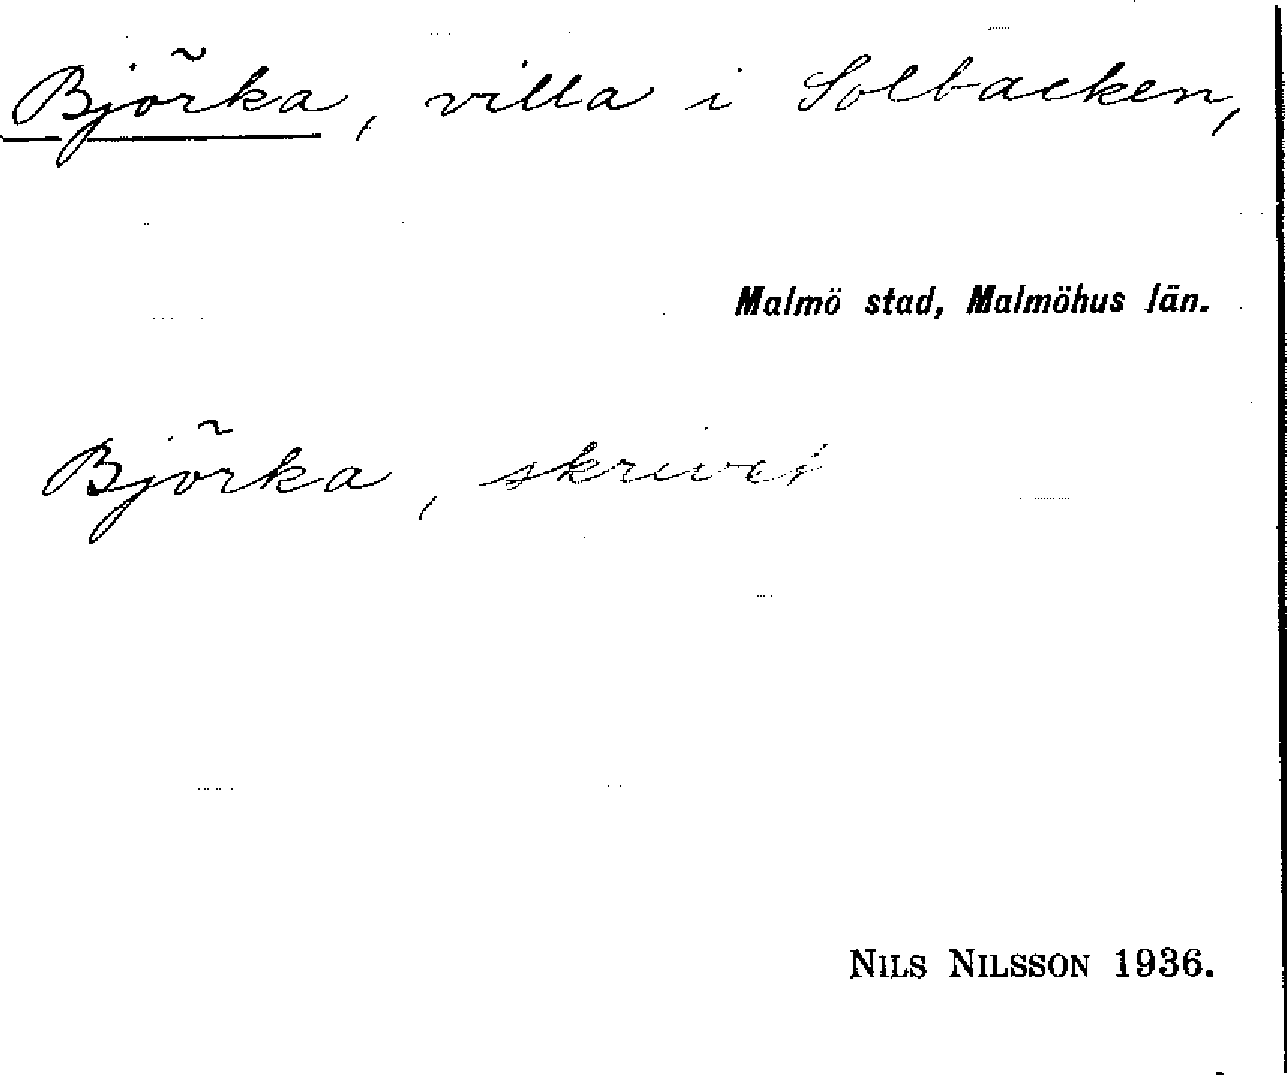 Björka, villa i Solbacken,
Malmö stad, Malmöhus län.
Björka, skrivet
NILS NILSSON 1936.